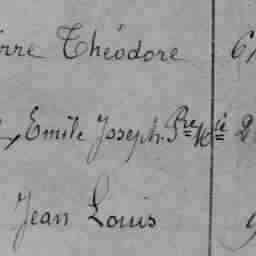 rre Théodore 6
Emile Joseph. P^re M^ie 2
Jean Louis 9